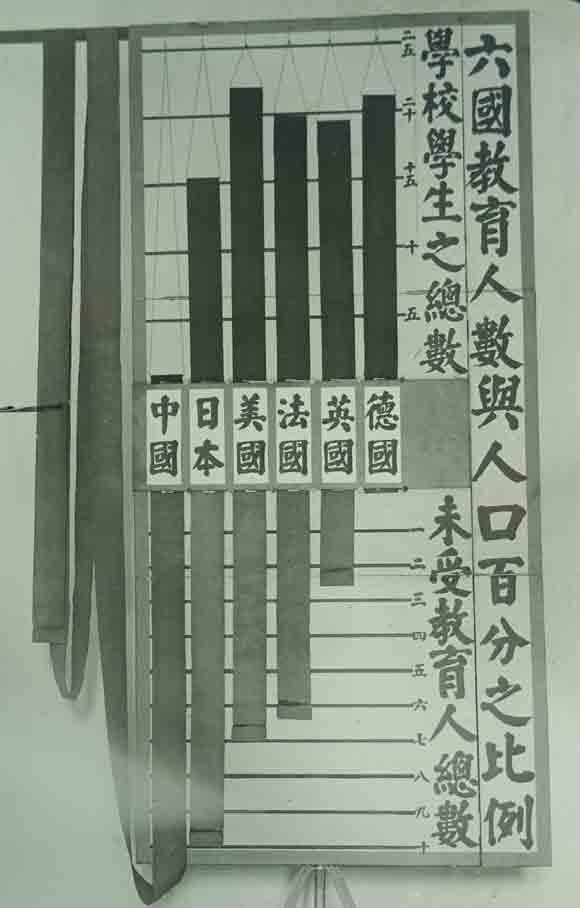 六國教育人數與人口百分之比例
學校學生之總數
二五
二十
十五
十
五
德國
英國
法國
美國
日本
中國
未受教育人總數
一
二
三
四
五
六
七
八
九
十